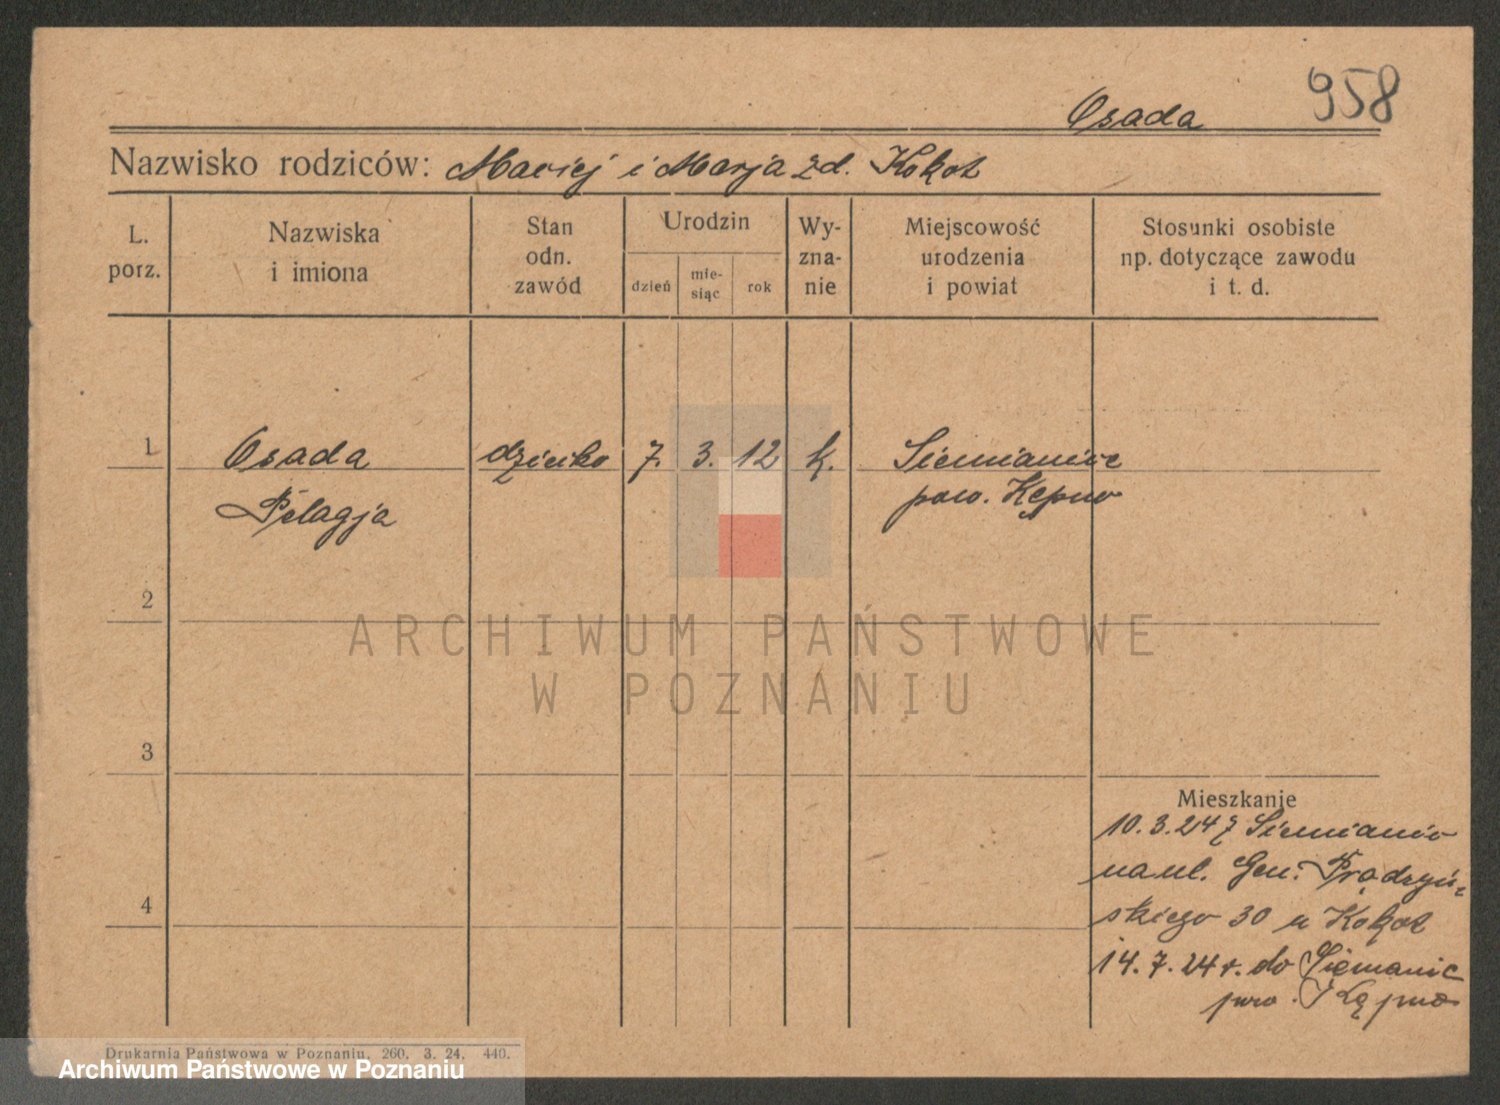 958
Osada
Nazwisko rodziców: Maciej i Marja żd. Kokot
L. porz.
Nazwiska i imiona
Stan odn. zawód
Urodzin
dzień
mie-siąc
rok
Wy-zna-nie
Miejscowość urodzenia i powiat
Stosunki osobiste np. dotyczące zawodu i t. d.
1 Osada dziecko 7. 3. 12 k. Siemianice
Pelagja pow. Kępno
2
3
4
ARCHIWUM PAŃSTWOWE
W POZNANIU
Mieszkanie
10.3.24 z Siemianic
na ul. Gen. Prądzyń-
skiego 30 u Kokot
14.7.24 r. do Siemanic
pow. Kępno
Drukarnia Państwowa w Poznaniu. 260. 3. 24. 440.
Archiwum Państwowe w Poznaniu